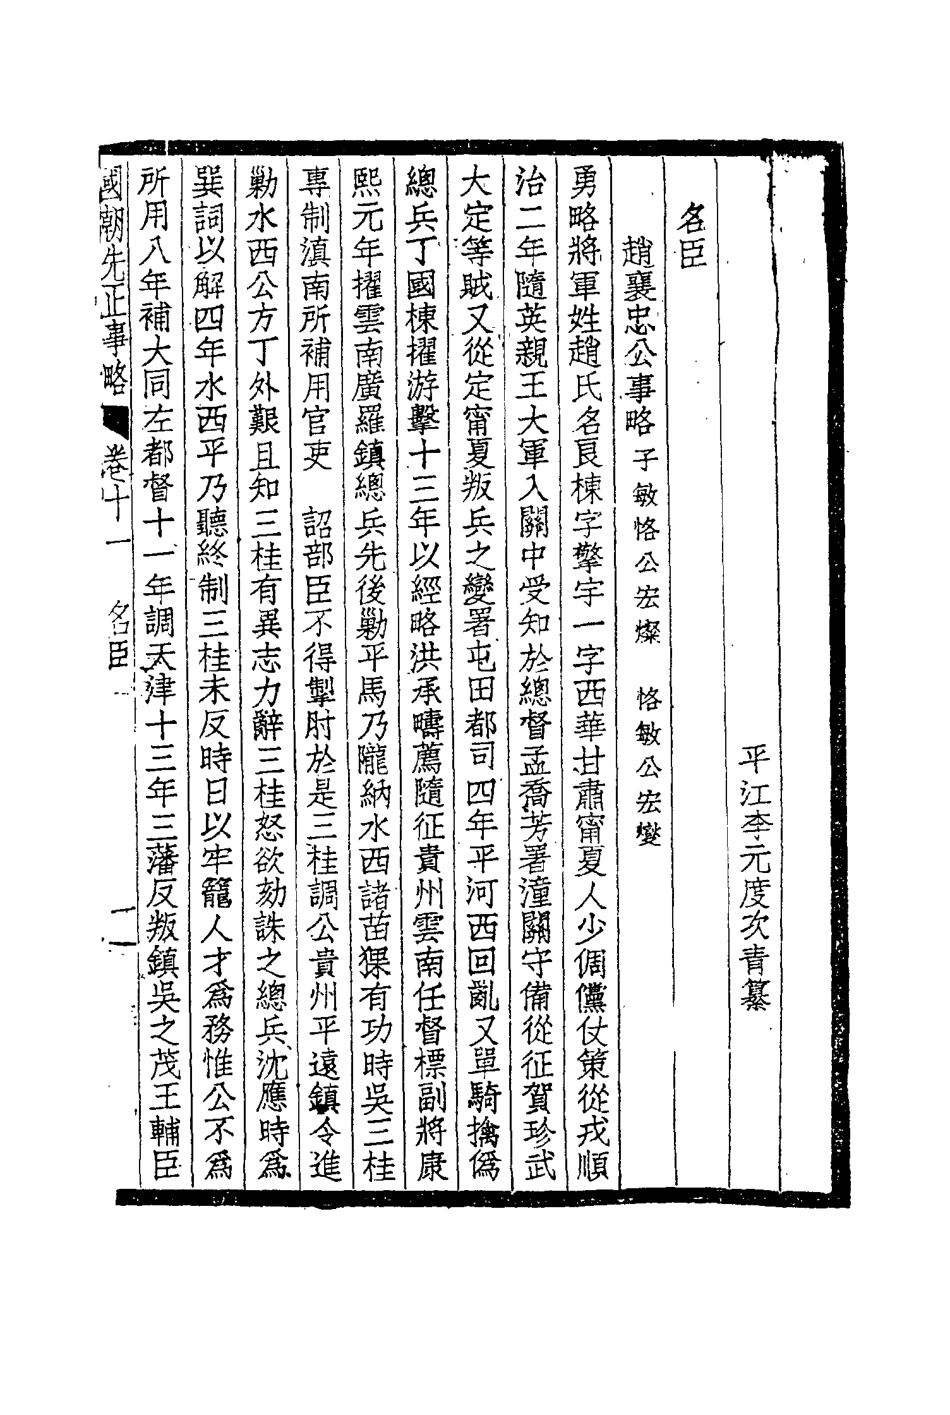 平江李元度次青纂
名臣
趙襄忠公事略子敏恪公宏燦 恪敏公宏燮
勇略將軍姓趙氏名良棟字擎宇一字西華甘肅甯夏人少倜儻仗策從戎順
治二年隨英親王大軍入關中受知於總督孟喬芳署潼關守備從征賀珍武
大定等賊又從定甯夏叛兵之變署屯田都司四年平河西回亂又單騎擒僞
總兵丁國棟擢游擊十三年以經略洪承疇薦隨征貴州雲南任督標副將康
熙元年擢雲南廣羅鎮總兵先後勦平馬乃隴納水西諸苗猓有功時吳三桂
專制滇南所補用官吏 詔部臣不得掣肘於是三桂調公貴州平遠鎮令進
勦水西公方丁外艱且知三桂有異志力辭三桂怒欲劾誅之總兵沈應時爲
巽詞以解四年水西平乃聽終制三桂未反時日以牢籠人才爲務惟公不爲
所用八年補大同左都督十一年調天津十三年三藩反叛鎮吳之茂王輔臣
國朝先正事略 卷十一 名臣 一